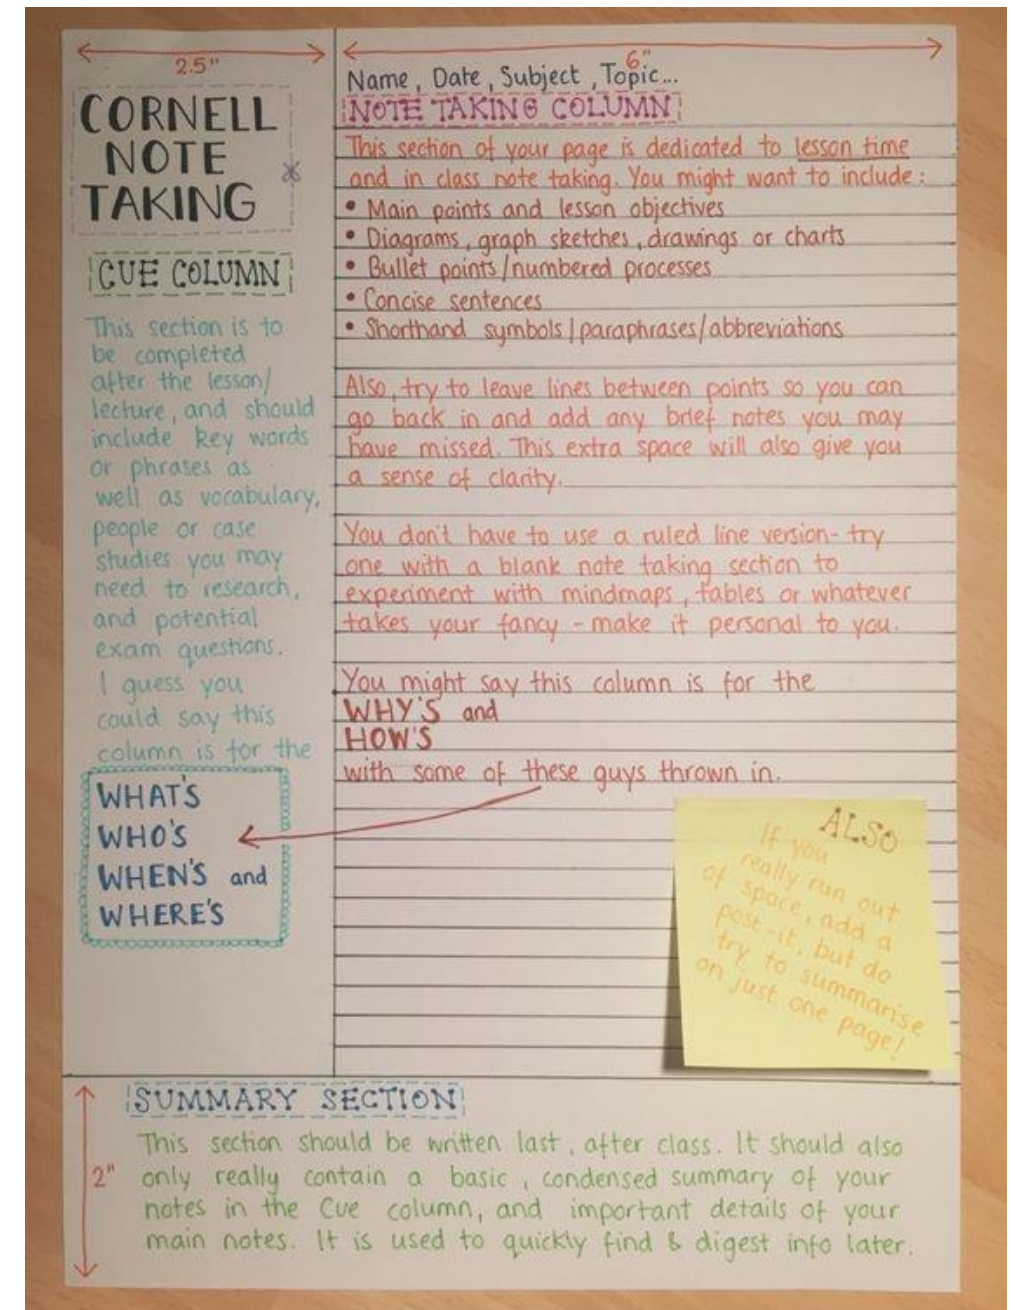 2.5"
6"
CORNELL
NOTE
TAKING
CUE COLUMN
This section is to
be completed
after the lesson/
lecture, and should
include key words
or phrases as
well as vocabulary,
people or case
studies you may
need to research,
and potential
exam questions.
I guess you
could say this
column is for the
WHAT'S
WHO'S
WHEN'S and
WHERE'S
Name, Date, Subject, Topic...
NOTE TAKING COLUMN
This section of your page is dedicated to lesson time
and in class note taking. You might want to include:
• Main points and lesson objectives
• Diagrams, graph sketches, drawings or charts
• Bullet points/numbered processes
• Concise sentences
• Shorthand symbols/paraphrases/abbreviations
Also, try to leave lines between points so you can
go back in and add any brief notes you may
have missed. This extra space will also give you
a sense of clarity.
You don't have to use a ruled line version- try
one with a blank note taking section to
experiment with mindmaps, tables or whatever
takes your fancy - make it personal to you.
You might say this column is for the
WHY'S and
HOW'S
with some of these guys thrown in.
ALSO
If you
really run out
of space, add a
post-it, but do
try to summarise
on just one page!
SUMMARY SECTION
2"
This section should be written last, after class. It should also
only really contain a basic, condensed summary of your
notes in the Cue column, and important details of your
main notes. It is used to quickly find & digest info later.